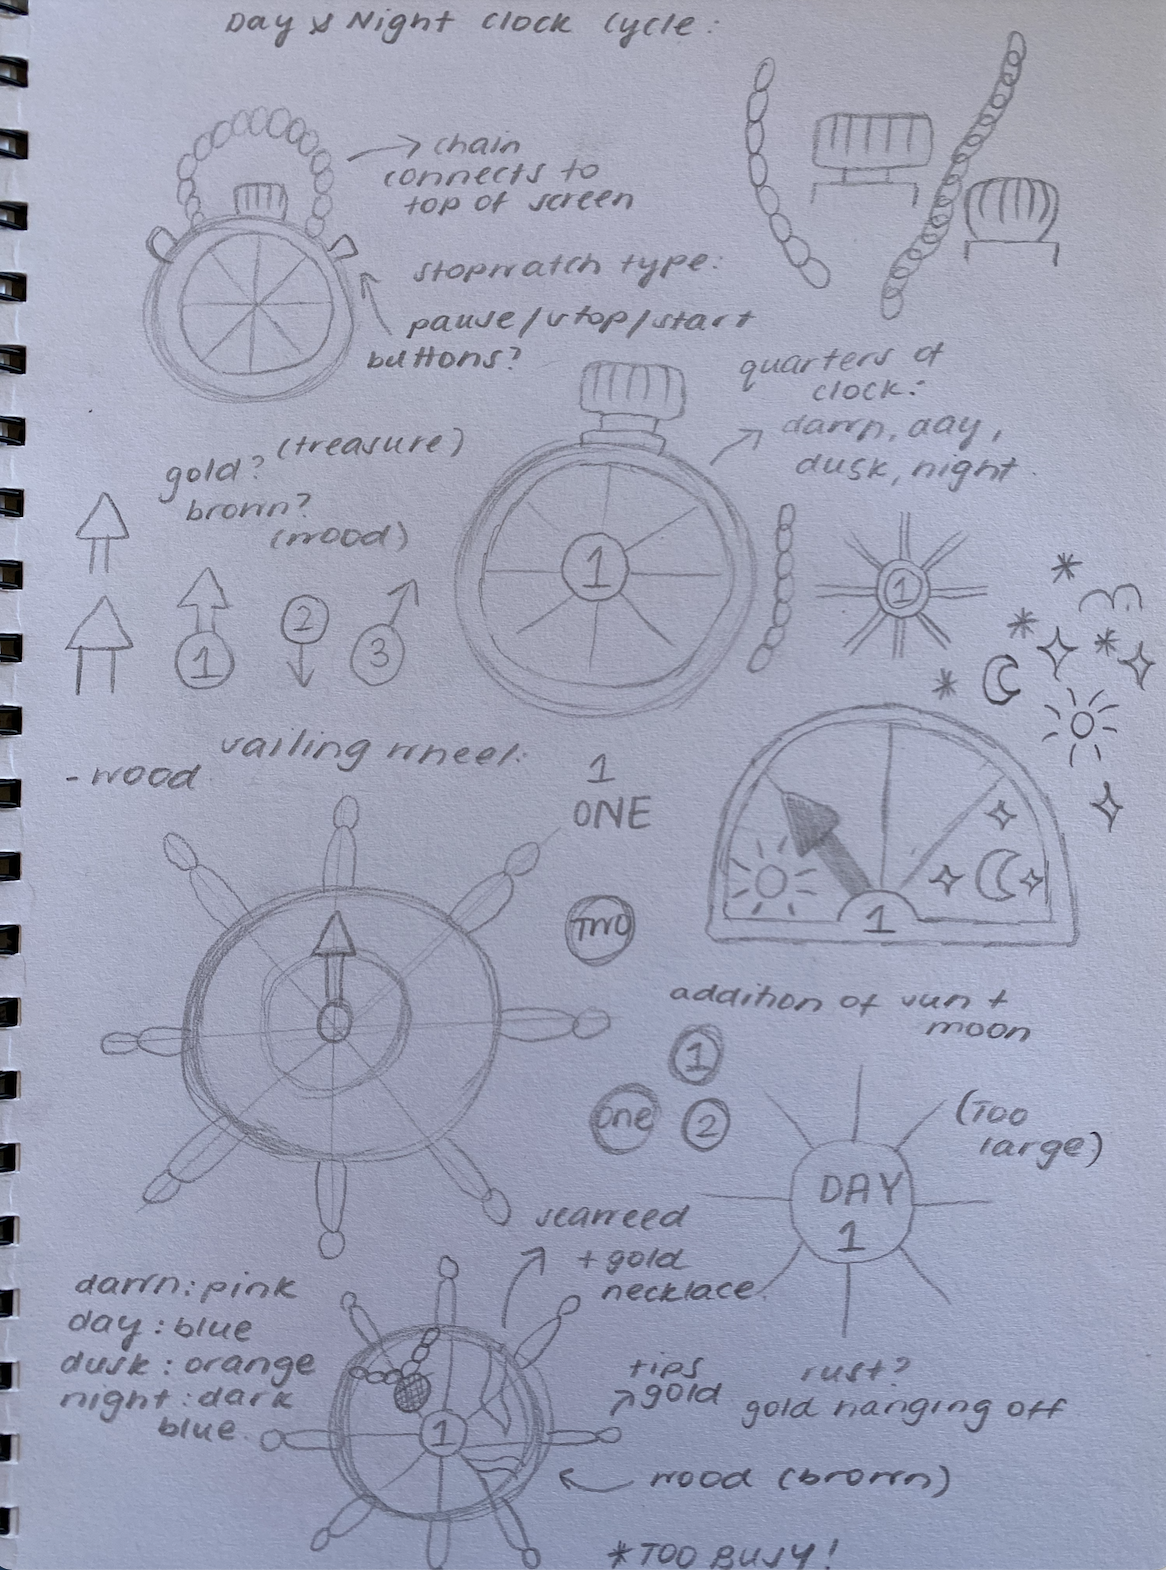 Day & Night Clock Cycle:
chain
connects to
top of screen
stopwatch type:
pause/stop/start
buttons?
quarters of
clock:
dawn, day,
dusk, night.
gold? (treasure)
brown?
(wood)
1
1
1
2
3
sailing wheel:
- wood
1
ONE
TWO
1
addition of sun +
moon
1
One
2
(Too
large)
DAY
1
seaweed
+ gold
necklace.
dawn: pink
day: blue
dusk: orange
night: dark
blue.
tips
gold
rust?
gold hanging off
1
wood (brown)
*TOO BUSY!